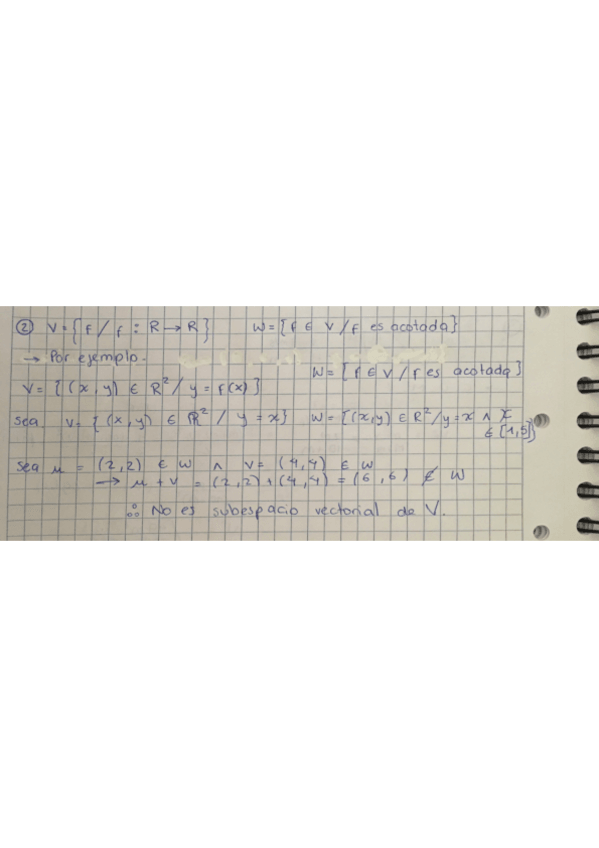 ② V={f/f: R→R} W={f ∈ V/f es acotada}
→ Por ejemplo.
W={f ∈ V/f es acotada}
V= {(x,y) ∈ R²/y=f(x)}
sea V={(x,y) ∈ R²/ y=x} W={(x,y) ∈ R²/y=x ∧ x
∈ [1,5]}
sea μ = (2,2) ∈ W ∧ V= (4,4) ∈ W
→ μ+V = (2,2)+(4,4) = (6,6) ∉ W
∴ No es subespacio vectorial de V.